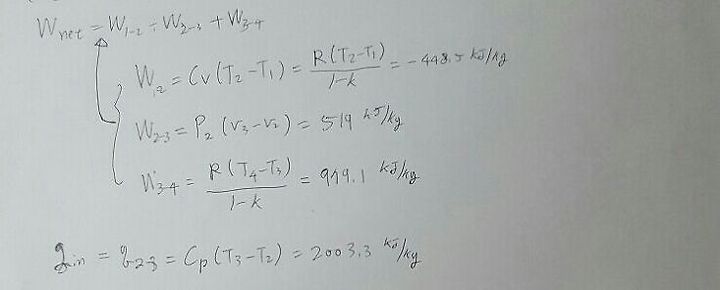 Wnet = W1-2 + W2-3 + W3-4
W12 = Cv(T2-T1) = R(T2-T1)/1-k = -448.5 kJ/kg
W2-3 = P2 (V3-V2) = 519 kJ/kg
W3-4 = R(T4-T3)/1-k = 949.1 kJ/kg
qin = q2-3 = Cp(T3-T2) = 2003.3 kJ/kg